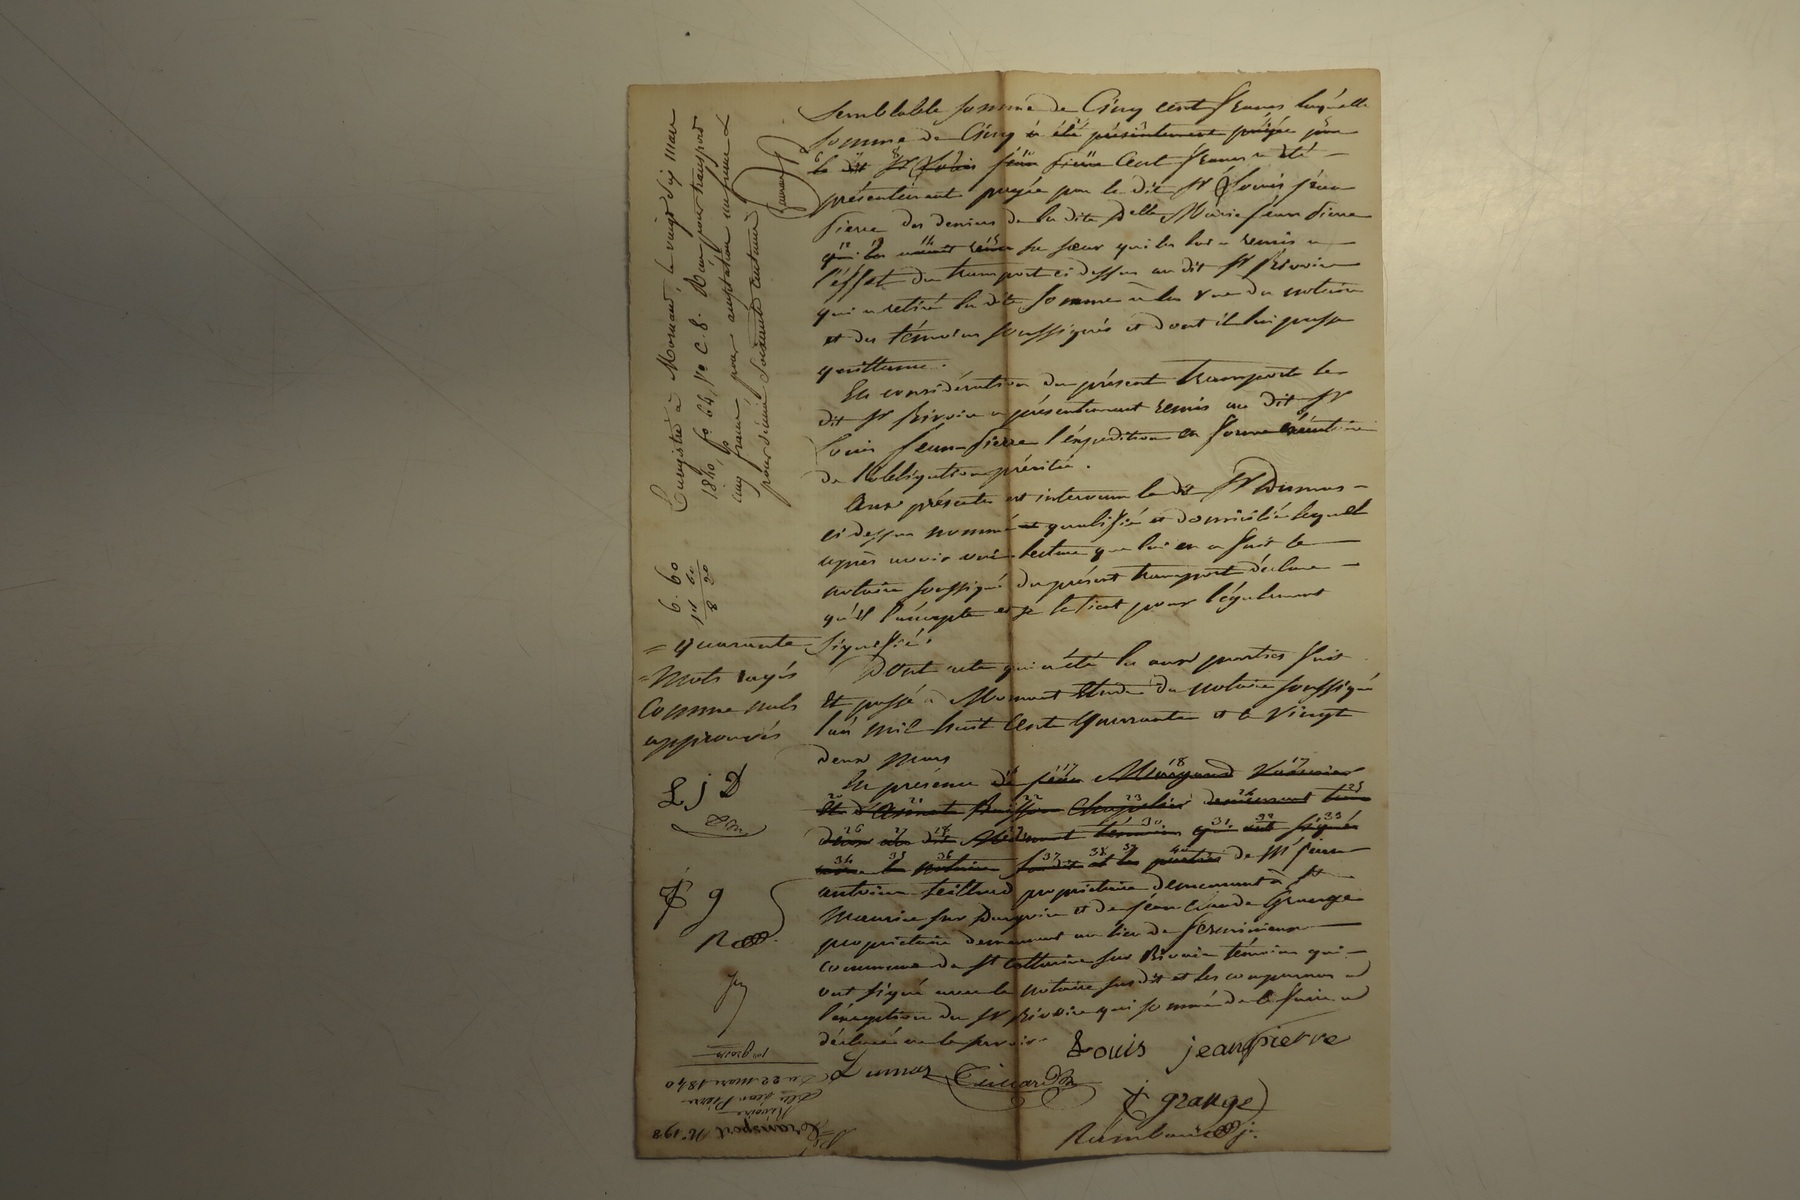 Semblable somme de Cinq cent francs laquelle
somme de Cinq a été présentement payée par
le dit Sr Louis jean pierre Cent francs a été
présentement payée par le dit Sr Louis jean
pierre des deniers de la dite Delle Marie jean pierre
qui les sa sœur qui les lui a remis a
l'effet du transport ci dessus au dit Sr Rivoire
qui a retiré la dite somme à la vue du notaire
et des témoins soussignés et dont il lui passe
quittance.
En considération du présent transport le
dit Sr Rivoire a présentement remis au dit Sr
Louis jean pierre l'expédition en forme exécutoire
de l'obligation précitée.
Aux présentes est intervenu le dit Sr Dumas
ci dessus nommé et qualifié et domicilié lequel
après avoir ouï lecture que lui en a fait le
notaire soussigné du présent transport déclare
qu'il l'accepte et se le tient pour légalement
signifié.
Dont acte qui a été lu aux parties fait
et passé à Mornant Etude du notaire soussigné
l'an mil huit Cent Quarante et le Vingt
deux Mars
En présence de jean
et d'
deux au dit Mornant témoins qui ont signés
avec le notaire susdit et les parties de Mr jean
antoine propriétaire demeurant à St
Maurice sur Dargoire et de jean Claude Grange
propriétaire demeurant au lieu de
commune de St Catherine sur Riverie témoins qui
ont signé avec le notaire susdit et les comparans a
l'exception du Sr Rivoire qui sommé de le faire a
déclaré ne le savoir.
Louis jeanpierre
Dumas
grange
Enregistré à Mornant, le vingt six mars
1840, fo 64, Vo C. 8. Reçu pour transport
cinq francs, pour acceptation un franc &
pour décime soixante centimes
6. 60
1 60
8 20
= quarante
= Mots rayés
Comme nuls
approuvés
L j D
g
Transport No 198
Rivoire
à Jean Pierre
Du 22 mars 1840